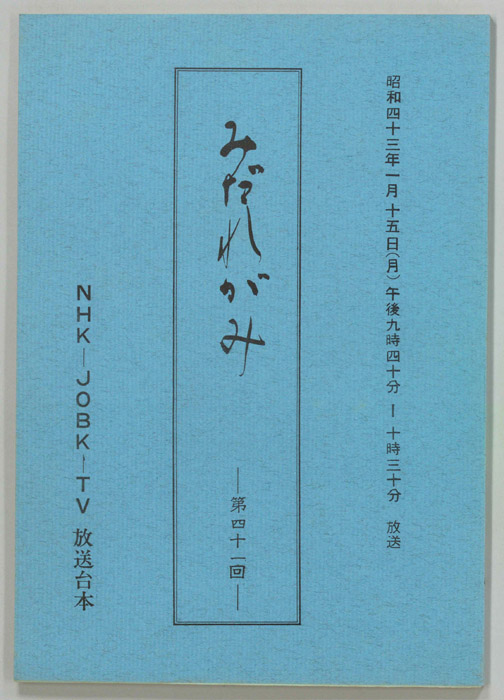 昭和四十三年一月十五日(月)午後九時四十分ー十時三十分 放送
みだれがみ
ー第四十一回ー
NHKーJOBKーTV 放送台本